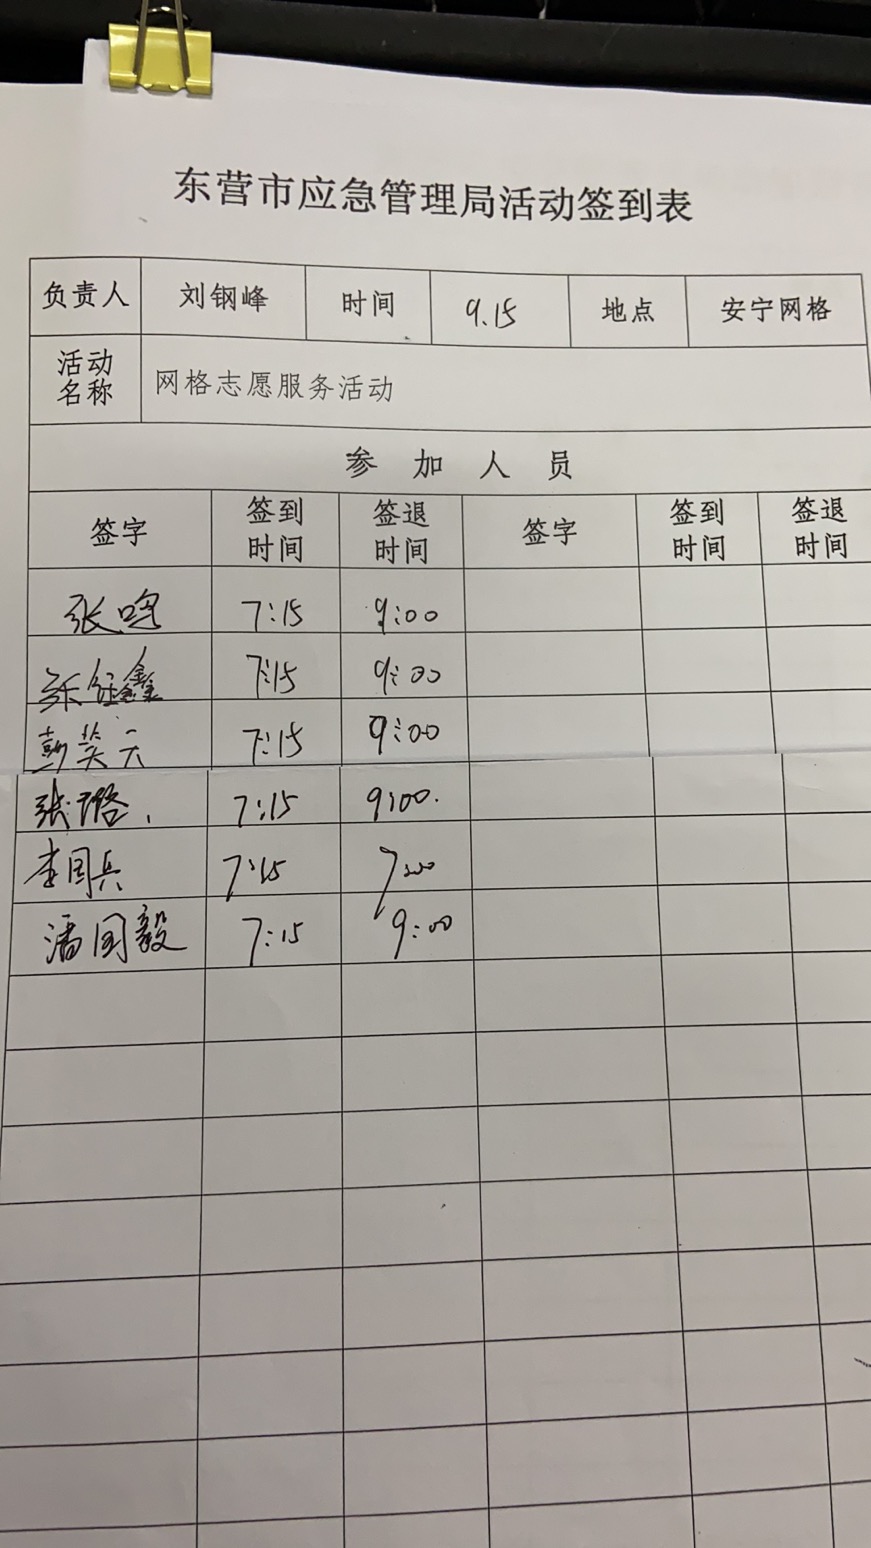 东营市应急管理局活动签到表
负责人 刘钢峰 时间 9.15 地点 安宁网格
活动名称 网格志愿服务活动
参加人员
签字 签到时间 签退时间 签字 签到时间 签退时间
张鸣 7:15 9:00
张鑫 7:15 9:00
7:15 9:00
张璐 7:15 9:00.
李国兵 7:15
潘国毅 7:15 9:00